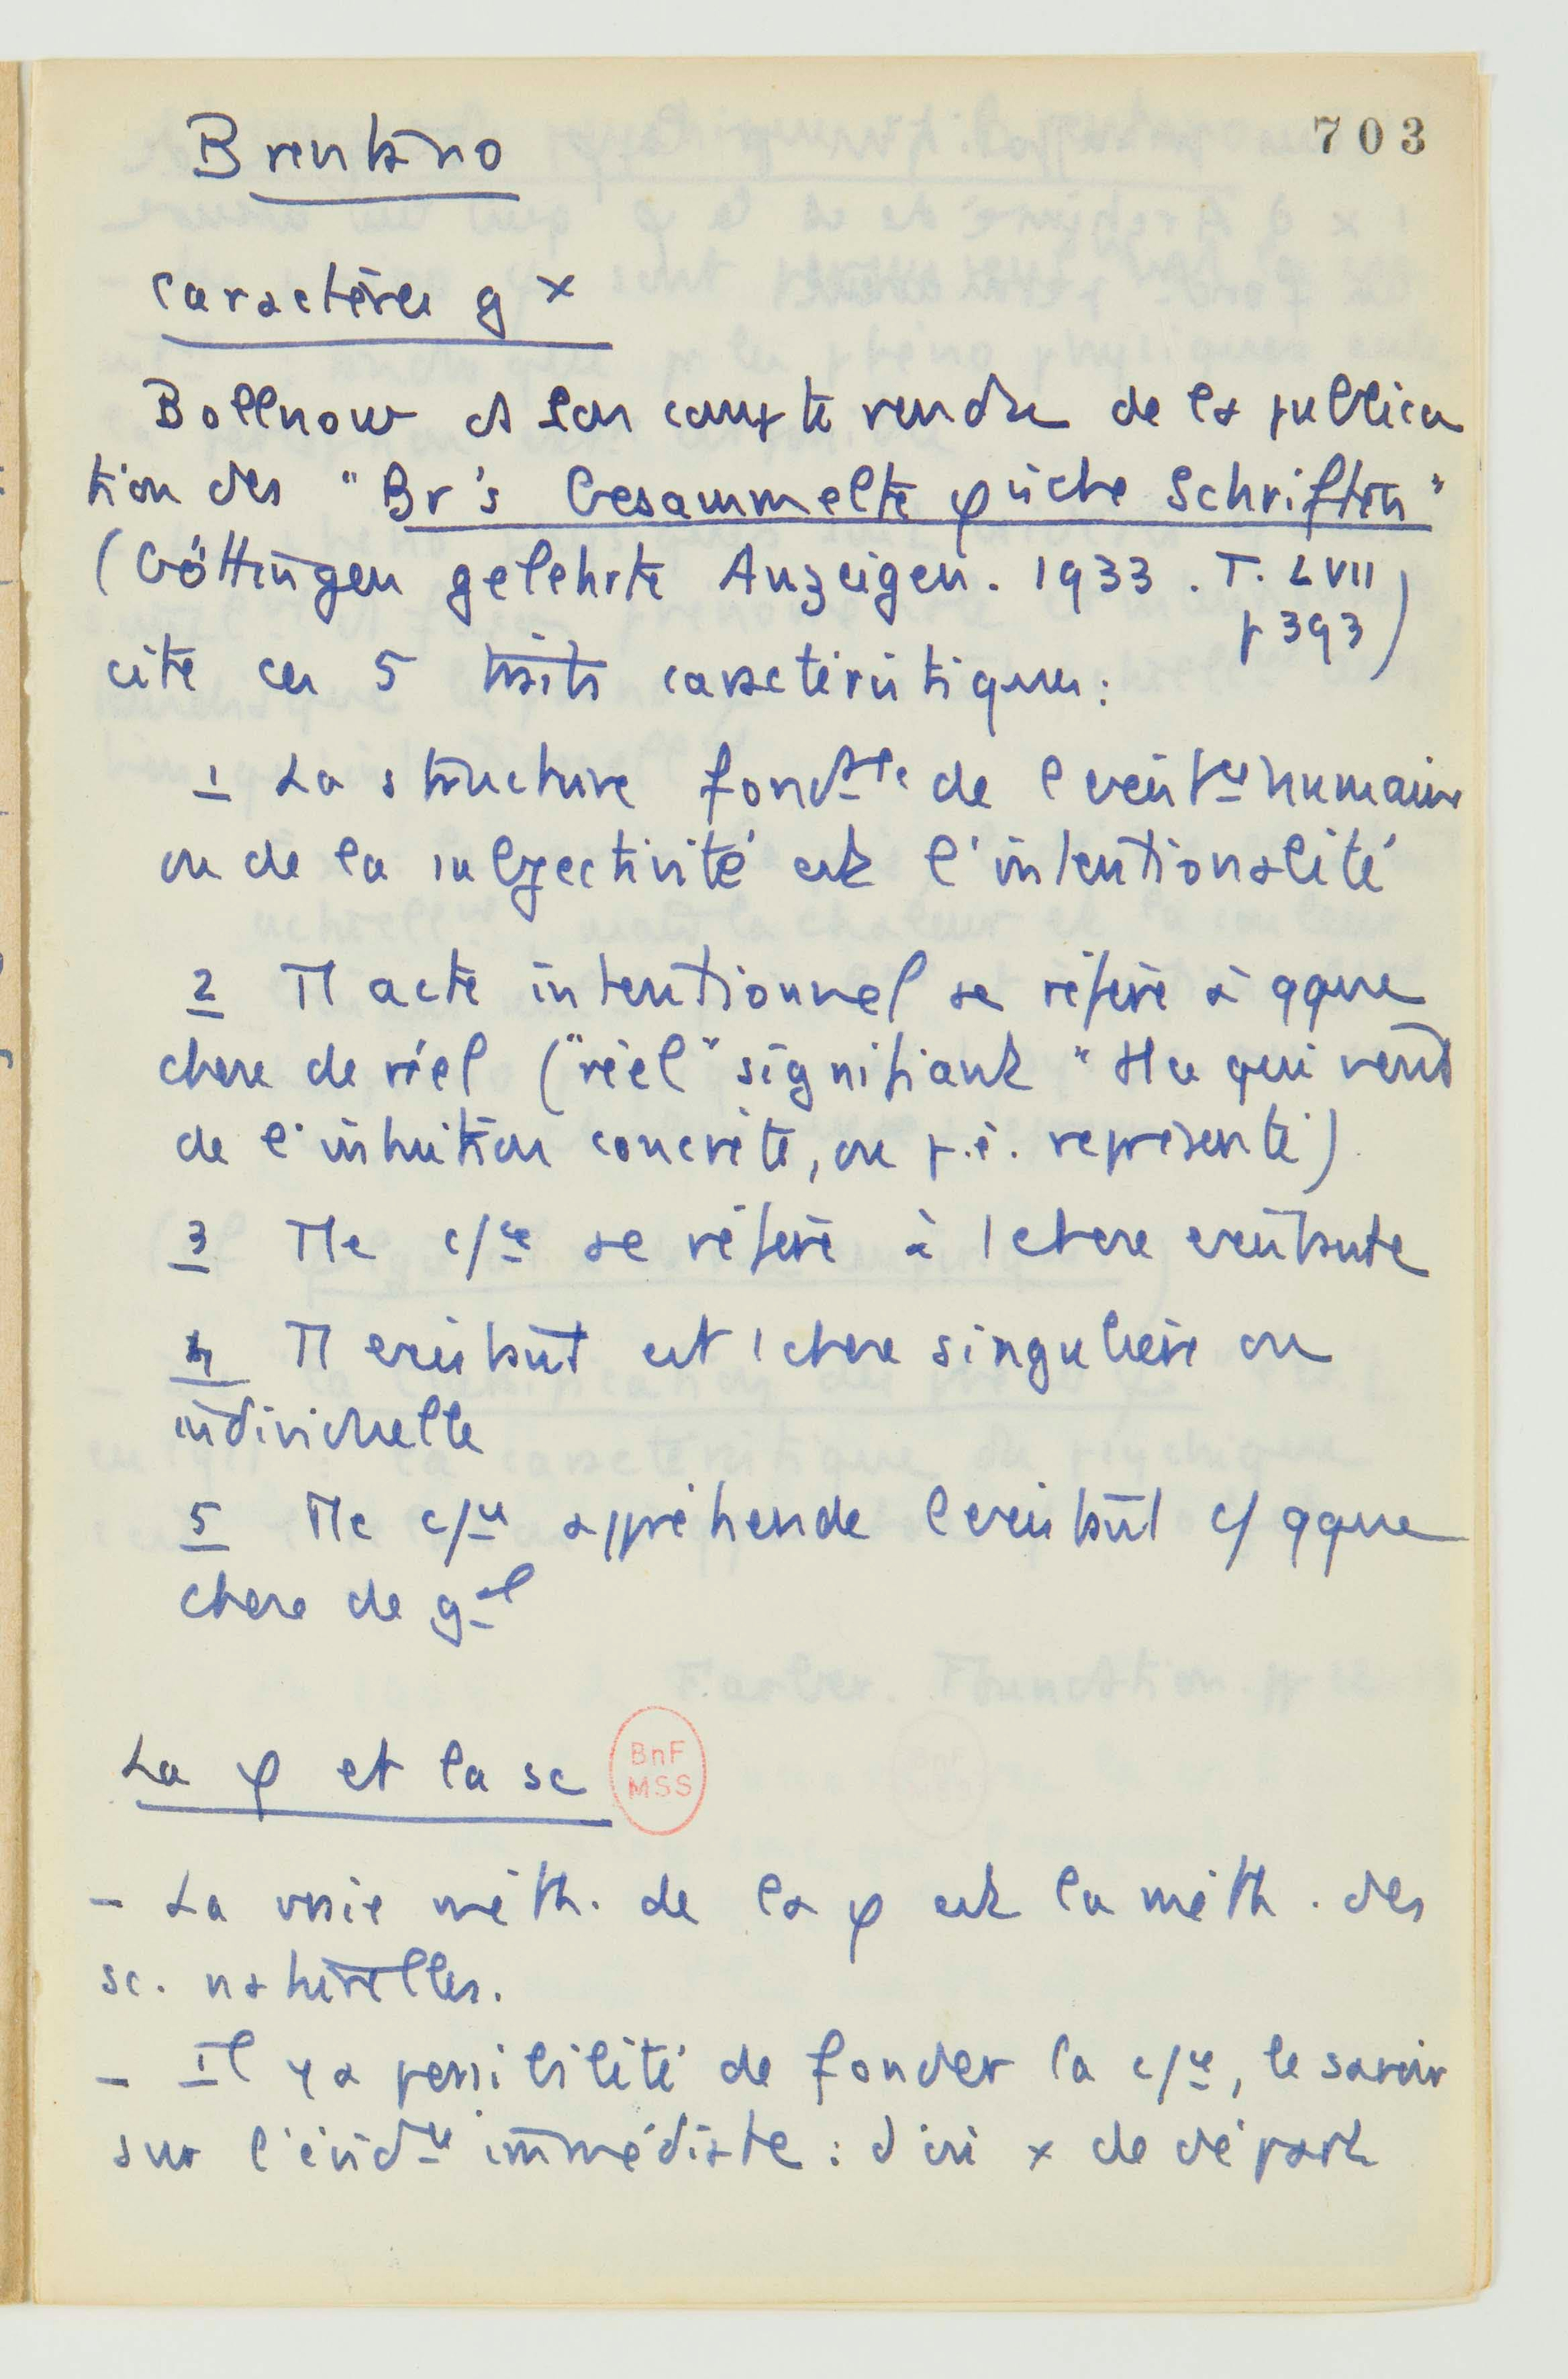 703
Brentano
caractères gx
Bollnow ds son compte rendu de la publica
tion des "Br's Gesammelte φische Schriften"
(Göttingen gelehrte Anzeigen. 1933. T. LVII
p 393)
cite ces 5 traits caractéristiques:
1 La structure fondtle de l'existce humaine
ou de la subjectivité est l'intentionalité
2 Tt acte intentionnel se réfère à qque
chose de réel ("réel" signifiant "qui vient
de l'intuition concrète, ou p.ê. représenté)
3 Tte c/ce se réfère à 1 chose existante
4 Tt existant est 1 chose singulière ou
individuelle
5 Tte c/ce appréhende l'existant c/ qque
chose de gal
La φ et la sc
BnF
MSS
- La vraie méth. de la φ est la méth. des
sc. naturelles.
- Il y a possibilité de fonder la c/ce, le savoir
sur l'évidce immédiate: d'où x de départ